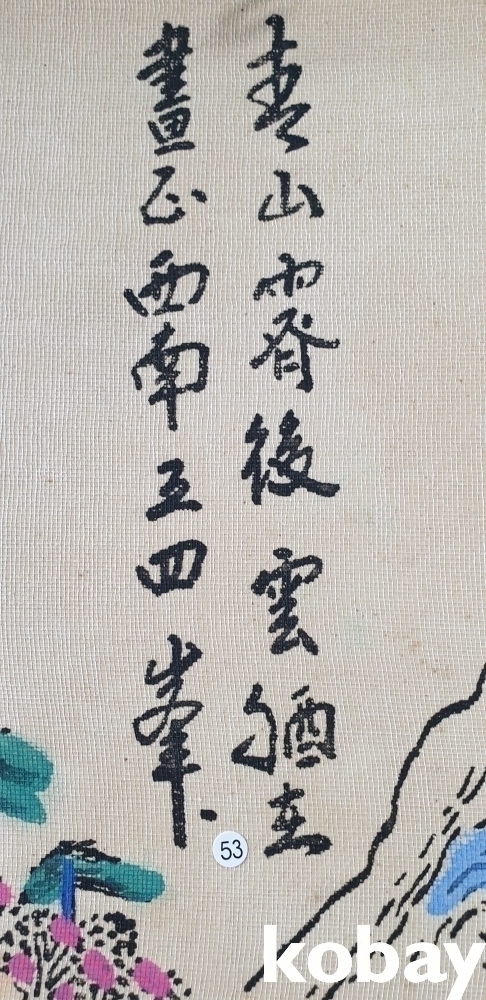 青山霽後雲猶在
畫正西南五四峯
53
kobay